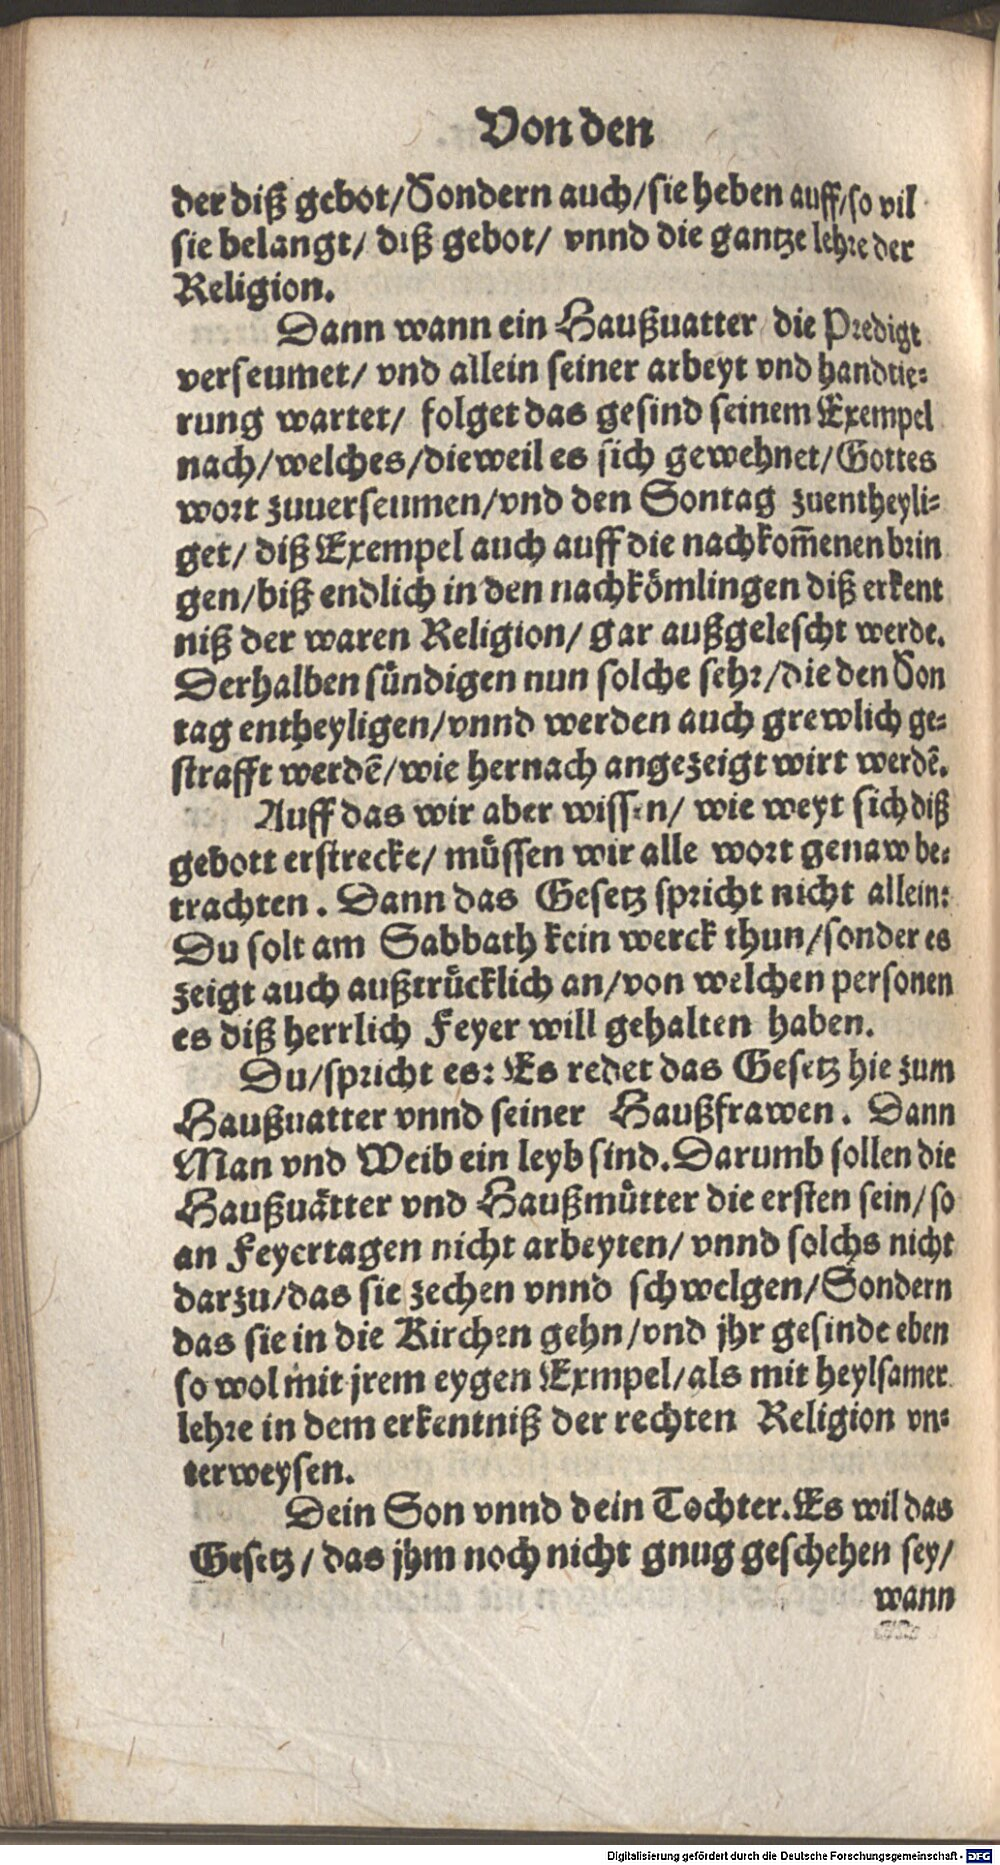 Von den
der diß gebot/Sondern auch/sie heben auff/so vil
sie belangt/ diß gebot/ vnnd die gantze lehre der
Religion.
Dann wann ein Haußuatter die Predigt
verseumet/ vnd allein seiner arbeyt vnd handtie-
rung wartet/ folget das gesind seinem Exempel
nach/welches/dieweil es sich gewehnet/Gottes
wort zuuerseumen/vnd den Sontag zuentheyli-
get/ diß Exempel auch auff die nachkom̄enen brin
gen/biß endlich in den nachkömlingen diß erkent
niß der waren Religion/ gar außgelescht werde.
Derhalben sündigen nun solche sehr/die den Son
tag entheyligen/vnnd werden auch grewlich ge-
strafft werdē/wie hernach angezeigt wirt werdē.
Auff das wir aber wissen/ wie weyt sich diß
gebott erstrecke/ müssen wir alle wort genaw be-
trachten. Dann das Gesetz spricht nicht allein:
Du solt am Sabbath kein werck thun/sonder es
zeigt auch außtrücklich an/von welchen personen
es diß herrlich Feyer will gehalten haben.
Du/spricht es: Es redet das Gesetz hie zum
Haußuatter vnnd seiner Haußfrawen. Dann
Man vnd Weib ein leyb sind. Darumb sollen die
Haußuätter vnd Haußmütter die ersten sein/so
an Feyertagen nicht arbeyten/ vnnd solchs nicht
darzu/das sie zechen vnnd schwelgen/Sondern
das sie in die Kirchen gehn/vnd jhr gesinde eben
so wol mit jrem eygen Exmpel/als mit heylsamer
lehre in dem erkentniß der rechten Religion vn-
terweysen.
Dein Son vnnd dein Tochter. Es wil das
Gesetz/ das jhm noch nicht gnug geschehen sey/
wann
Digitalisierung gefördert durch die Deutsche Forschungsgemeinschaft - DFG